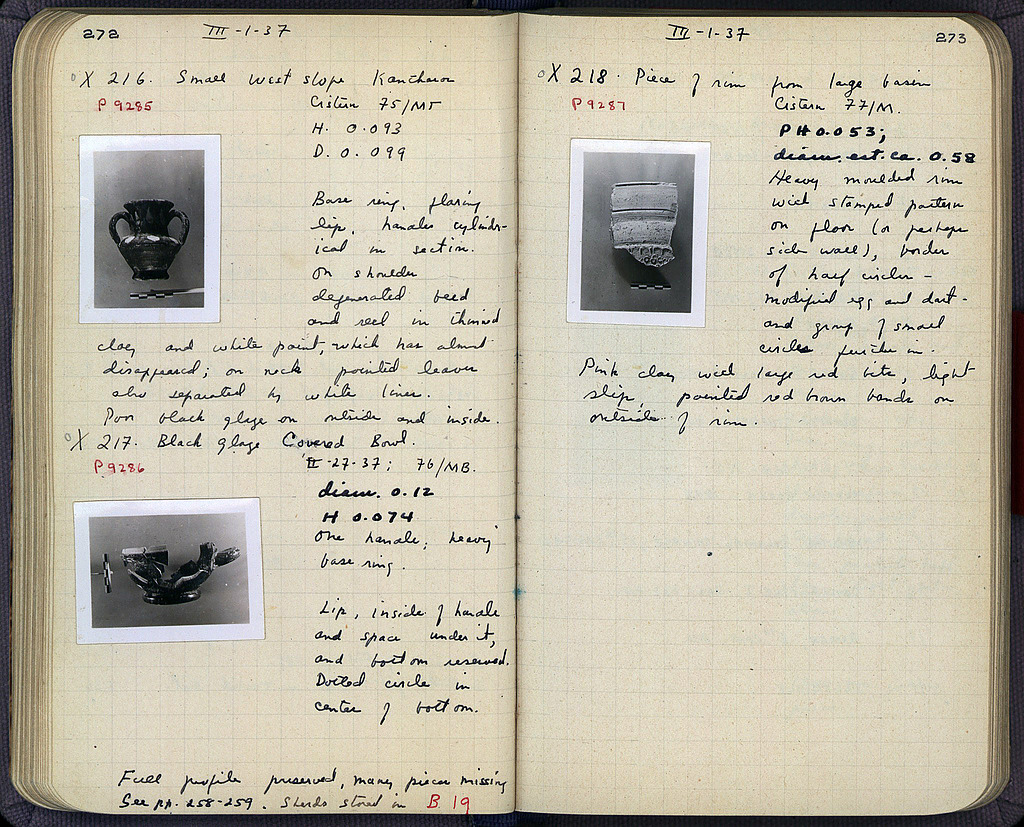 272
III-1-37
X 216. Small west slope Kantharos
P 9285
Cistern 75/ΜΓ
H. 0.093
D. 0.099
Base ring, flaring
lip, handles cylindr-
ical in section.
On shoulder
degenerated bead
and reel in thinned
clay and white paint, which has almost
disappeared; on neck pointed leaves
also separated by white lines.
Poor black glaze on outside and inside.
X 217. Black glaze Covered Bowl.
P 9286
II-27-37; 76/MB.
diam. 0.12
H 0.074
One handle; heavy
base ring.
Lip, inside of handle
and space under it,
and bottom reserved.
Dotted circle in
center of bottom.
Full profile preserved, many pieces missing
See pp. 258-259. Sherds stored in B 19
III-1-37
273
X 218. Piece of rim from large basin
P 9287
Cistern 77/M.
PH 0.053;
diam. est. ca. 0.58
Heavy moulded rim
with stamped pattern
on floor (or perhaps
side wall), border
of half circles -
modified egg and dart -
and group of small
circles further in.
Pink clay with large red bits, light
slip, painted red brown bands on
outside of rim.